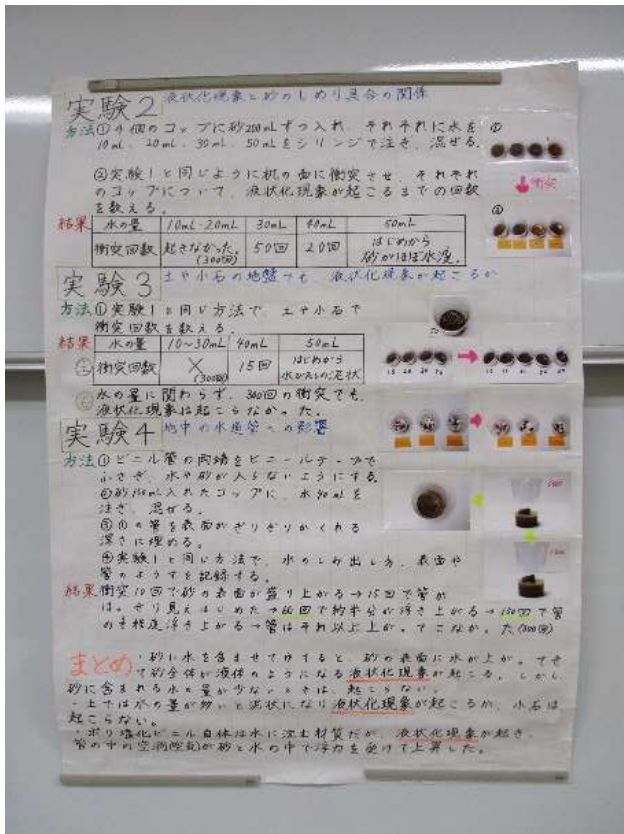 実験2 液状化現象と砂のしめり具合の関係
方法①4個のコップに砂200mLずつ入れ、それぞれに水を
10mL、20mL、30mL、50mLをシリンジで注ぎ、混ぜる。
②実験1と同じように机の面に衝突させ、それぞれ
のコップについて、液状化現象が起こるまでの回数
を数える。
①
衝突
②
結果 水の量 10mL・20mL 30mL 40mL 50mL
衝突回数 起きなかった。(300回) 50回 20回 はじめから砂がほぼ水浸。
実験3 土や小石の地盤でも、液状化現象が起こるか
方法①実験1と同じ方法で、土や小石で
衝突回数を数える。
結果 水の量 10~30mL 40mL 50mL
土 衝突回数 ×(300回) 15回 はじめから水がたしの泥状
水の量に関わらず、300回の衝突でも、
液状化現象は起こらなかった。
実験4 地中の水道管への影響
方法①ビニル管の両端をビニールテープで
ふさぎ、水や砂が入らないようにする。
②砂150mL入れたコップに、水40mLを
注ぎ、混ぜる。
③①の管を表面がぎりぎりかくれる
深さに埋める。
④実験1と同じ方法で、水のしみ出し方、表面や
管のようすを記録する。
結果 衝突10回で砂の表面が盛り上がる→15回で管が
はっきり見えはじめた→60回で約半分が浮き上がる→150回で管
の 程度浮き上がる→管はそれ以上上がってこなかった(300回)
まとめ ・砂に水を含ませてゆすると、砂の表面に水が上がってき
て砂全体が液体のようになる液状化現象が起こる。しかし、
砂に含まれる水の量が少ないときは、起こらない。
・土では水の量が多いと泥状になり液状化現象が起こるが、小石は
起こらない。
・ポリ塩化ビニル自体は水に沈む材質だが、液状化現象が起き、
管の中の空洞(空気)が砂と水の中で浮力を受けて上昇した。